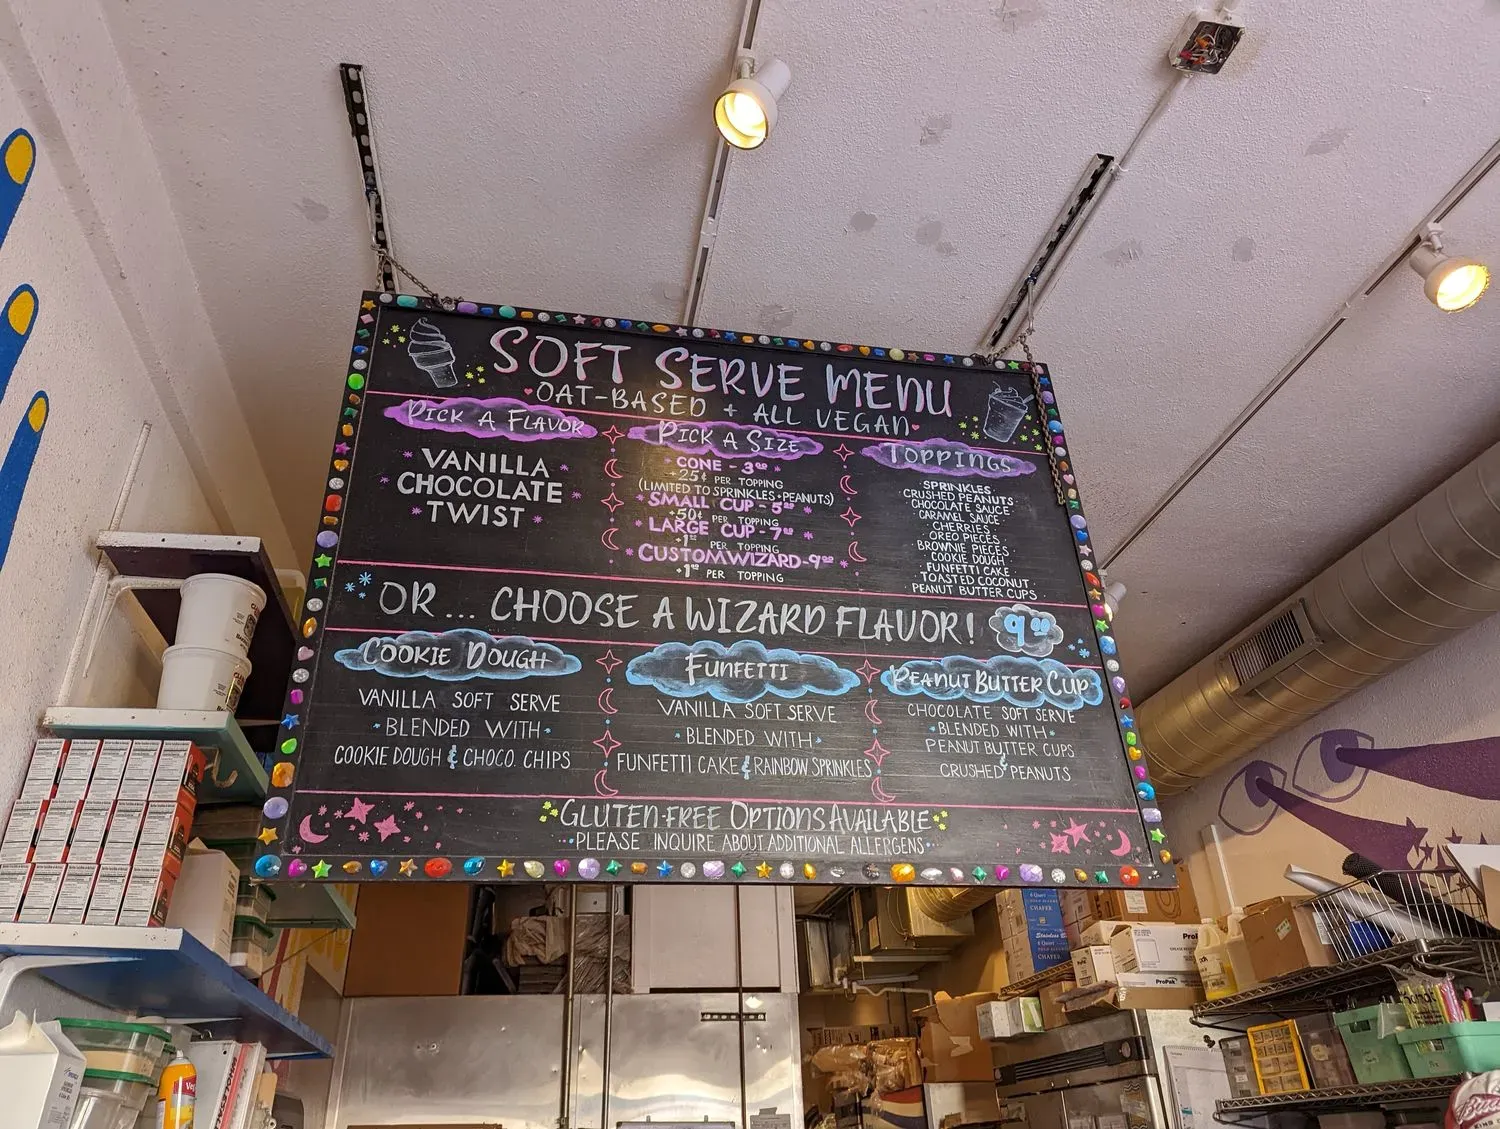 SOFT SERVE MENU
OAT-BASED + ALL VEGAN
PICK A FLAVOR
VANILLA
CHOCOLATE
TWIST
PICK A SIZE
CONE - 3⁰⁰
+25¢ PER TOPPING
(LIMITED TO SPRINKLES + PEANUTS)
SMALL CUP - 5⁰⁰
+50¢ PER TOPPING
LARGE CUP - 7⁰⁰
+1⁰⁰ PER TOPPING
CUSTOM WIZARD - 9⁰⁰
+1⁰⁰ PER TOPPING
TOPPINGS
SPRINKLES
CRUSHED PEANUTS
CHOCOLATE SAUCE
CARAMEL SAUCE
CHERRIES
OREO PIECES
BROWNIE PIECES
COOKIE DOUGH
FUNFETTI CAKE
TOASTED COCONUT
PEANUT BUTTER CUPS
OR... CHOOSE A WIZARD FLAVOR! 9⁰⁰
COOKIE DOUGH
VANILLA SOFT SERVE
BLENDED WITH
COOKIE DOUGH & CHOCO. CHIPS
FUNFETTI
VANILLA SOFT SERVE
BLENDED WITH
FUNFETTI CAKE & RAINBOW SPRINKLES
PEANUT BUTTER CUP
CHOCOLATE SOFT SERVE
BLENDED WITH
PEANUT BUTTER CUPS
&
CRUSHED PEANUTS
GLUTEN-FREE OPTIONS AVAILABLE
PLEASE INQUIRE ABOUT ADDITIONAL ALLERGENS
CHAFER
CHAFER
ProPak